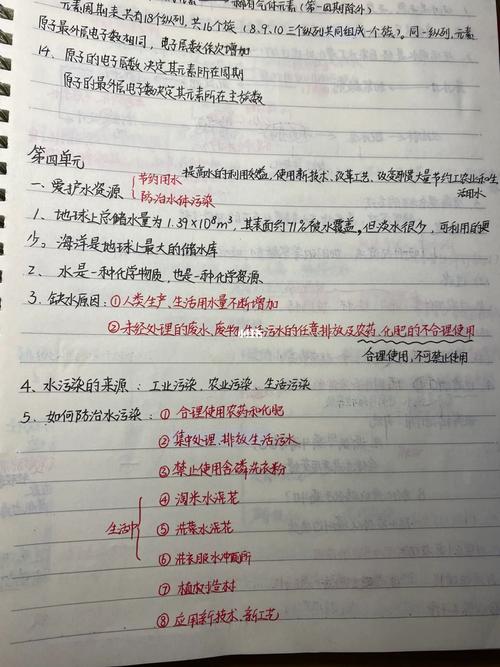 元素周期表共有18个纵列,共16个族(8.9.10三个纵列共同组成一个族)。同一纵列,元素
原子最外层电子数相同,电子层数依次增加
14、原子的电子层数决定其元素所在周期
原子的最外层电子数决定其元素所在主族数
第四单元
一、爱护水资源
节约用水
提高水的利用效益,使用新技术、改革工艺、改变习惯大量节约工农业和生
活用水
防治水体污染
1、地球上总储水量为1.39×10⁸m³,其表面约71%被水覆盖。但淡水很少,可利用的更
少。海洋是地球上最大的储水库
2、水是一种化学物质,也是一种化学资源
3、缺水原因:①人类生产、生活用水量不断增加
②未经处理的废水、废物,生活污水的任意排放及农药、化肥的不合理使用
合理使用,不可禁止使用
4、水污染的来源:工业污染、农业污染、生活污染
5、如何防治水污染:①合理使用农药和化肥
②集中处理、排放生活污水
③禁止使用含磷洗衣粉
生活中
④淘米水浇花
⑤洗菜水浇花
⑥洗衣服水冲厕所
⑦植树造林
⑧应用新技术、新工艺